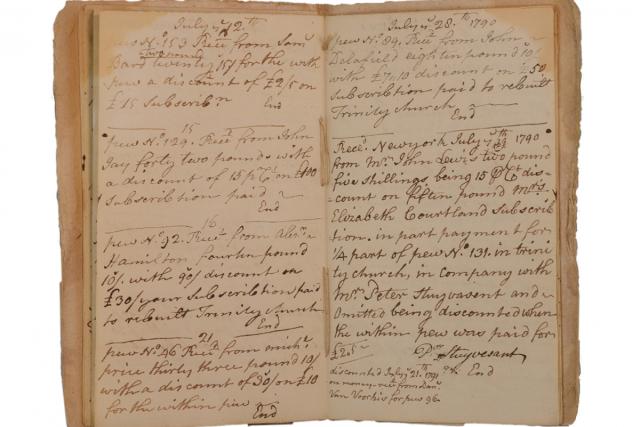 July ye 12th
pew No. 153 Recd from Sam
two pounds
Bard twenty 15/ for the with
pew a discount of £2/5 on
£15 Subscribn
End
15
pew No. 129. Recd from John
Jay forty two pounds with
a discount of 15 pCt on £100
Subscribtion paid
End
16
pew No. 92. Recd from Alexr
Hamilton fourtin pound
10/. with 90/ discount on
£30/ your Subscribtion paid
to rebuilt Trinity Church
End
21
pew No. 46 Recd from michl
price thirty three pound 10/
with a discount of 30/ on £10
for the within pew
End
July ye 28th 1790
pew No. 84. Recd from John
Delafield eightin pound 10/
with £7/10 discount on £50
Subscribtion paid to rebuilt
Trinity church
End
Recd. Newyork July ye 1790
from Mr. John Lewis two pound
five shillings being 15 PCt dis-
-count on fiftin pound Mrs
Elizabeth Courtland Subscrib
tion. in part payment for
1/4 part of pew No. 131. in trini
ty church, in company with
Mr. Peter Stuyvasent and
omitted being discounted when
the within pew was paid for
£2.5s
Stuyvesant
discounted July ye 21th 1791
End
on money recd from
Van Voorhis for pew 96